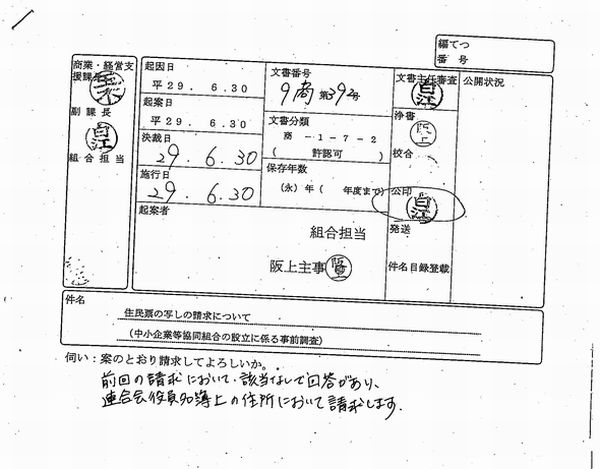 編てつ
番 号
商業・経営支
援課長
副 課 長
白江
組 合 担 当
起因日
平 29. 6.30
起案日
平 29. 6.30
決裁日
29. 6.30
施行日
29. 6.30
文書番号
9商第392号
文書分類
商 －1－7－2
( 許認可 )
保存年数
(永) 年 ( 年度まで)
文書主任審査
白江
浄書
阪上
校合
公印
白江
発送
件名目録登載
公開状況
起案者
組合担当
阪上主事
件名
住民票の写しの請求について
(中小企業等協同組合の設立に係る事前調査)
伺い：案のとおり請求してよろしいか。
前回の請求において、該当なしで回答があり、
連合会役員名簿上の住所において請求します。